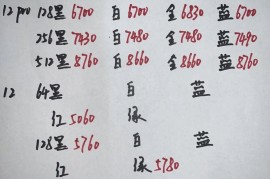 12 pro 128黑 6700 白 6700 金 6830 蓝 6700
256黑 7430 白 7480 金 7480 蓝 7490
512黑 8760 白 8660 金 8660 蓝 8760
12 64黑 白 蓝
红 5060 绿
128黑 5760 白 蓝
红 绿 5780